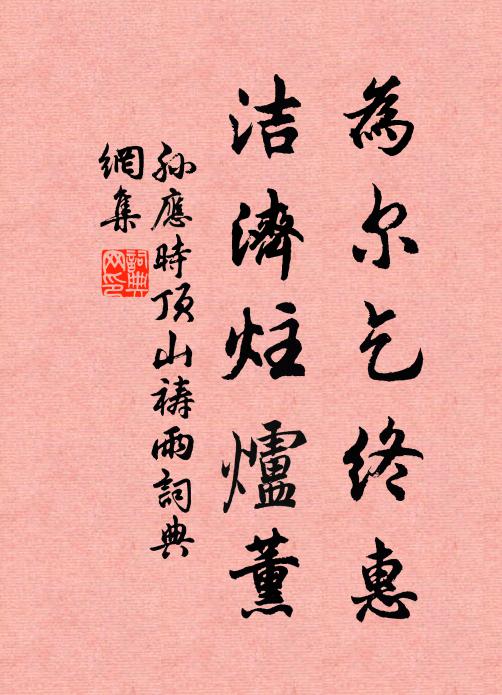 為尔乞终惠
洁濟炷爐薰
孙應時顶山禱雨詞典
網集
詞典
网印